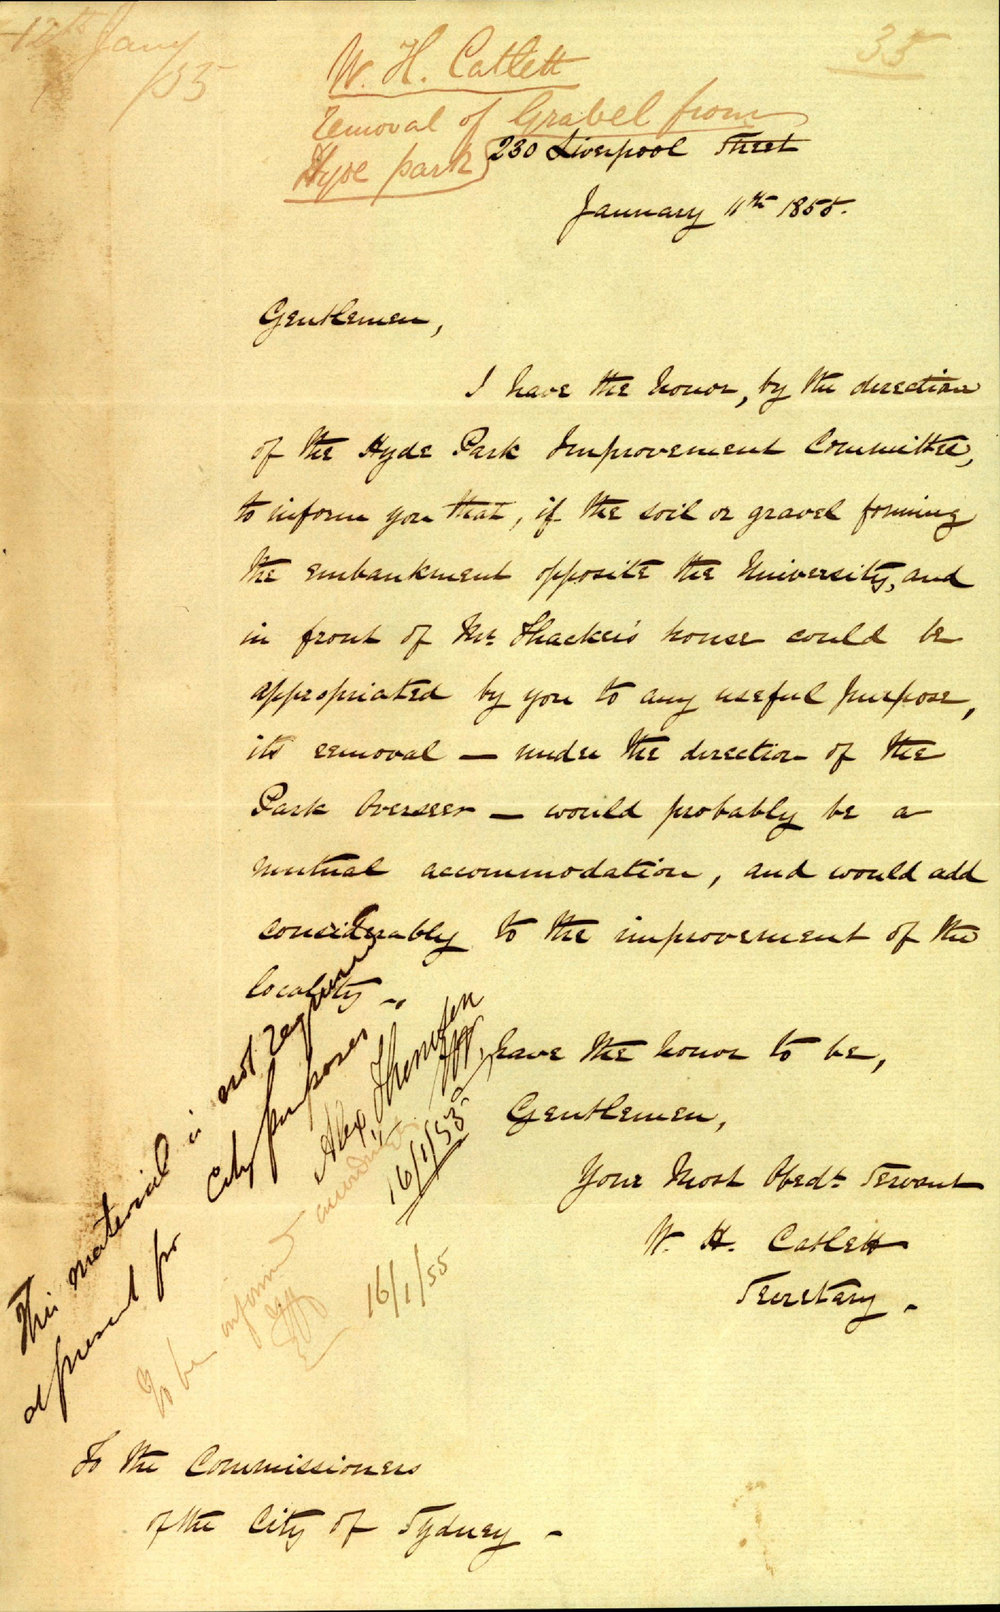 12th Jany
/55
35
W. H. Catlett
removal of Grabel from
Hyde park
230 Liverpool Street
January 11th 1855.
Gentlemen,
I have the honor, by the direction
of the Hyde Park Improvement Committee,
to inform you that, if the soil or gravel forming
the embankment opposite the University, and
in front of Mr. Thacker's house could be
appropriated by you to any useful purpose,
its removal — under the direction of the
Park Overseer — would probably be a
mutual accommodation, and would add
considerably to the improvement of the
locality.
have the honor to be,
Gentlemen,
Your Most Obedt. Servant
W. H. Catlett
Secretary.
This material is not required
at present for City purposes
Alex, Thomson
16/1/55
To be informed accordingly
16/1/55
To the Commissioners
of the City of Sydney.